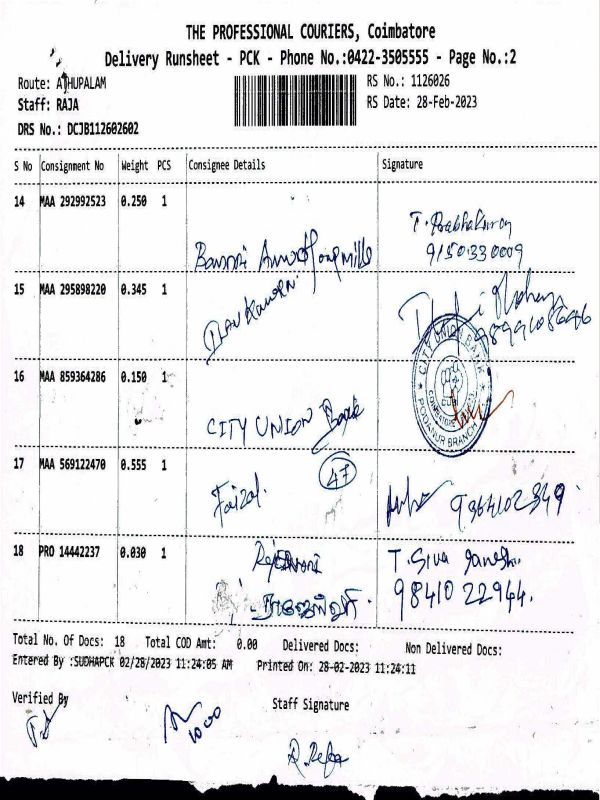 THE PROFESSIONAL COURIERS, Coimbatore
Delivery Runsheet - PCK - Phone No.:0422-3505555 - Page No.:2
Route: ATHUPALAM
RS No.: 1126026
Staff: RAJA
RS Date: 28-Feb-2023
DRS No.: DCJB112602602
S No Consignment No Weight PCS Consignee Details Signature
14 MAA 292992523 0.250 1
T. Prabhakaran
9150330009
15 MAA 295898220 0.345 1
16 MAA 859364286 0.150 1
CITY UNION BANK
PODANUR BRANCH
CITY UNION Bank
17 MAA 569122470 0.555 1
47
Faizal. 9364102349
18 PRO 14442237 0.030 1
T. Siva Ganesh
ராஜேஸ்வரி 98410 22944.
Total No. Of Docs: 18 Total COD Amt: 0.00 Delivered Docs: Non Delivered Docs:
Entered By :SUDHAPCK 02/28/2023 11:24:05 AM Printed On: 28-02-2023 11:24:11
Verified By
Staff Signature
1000
R. Raja